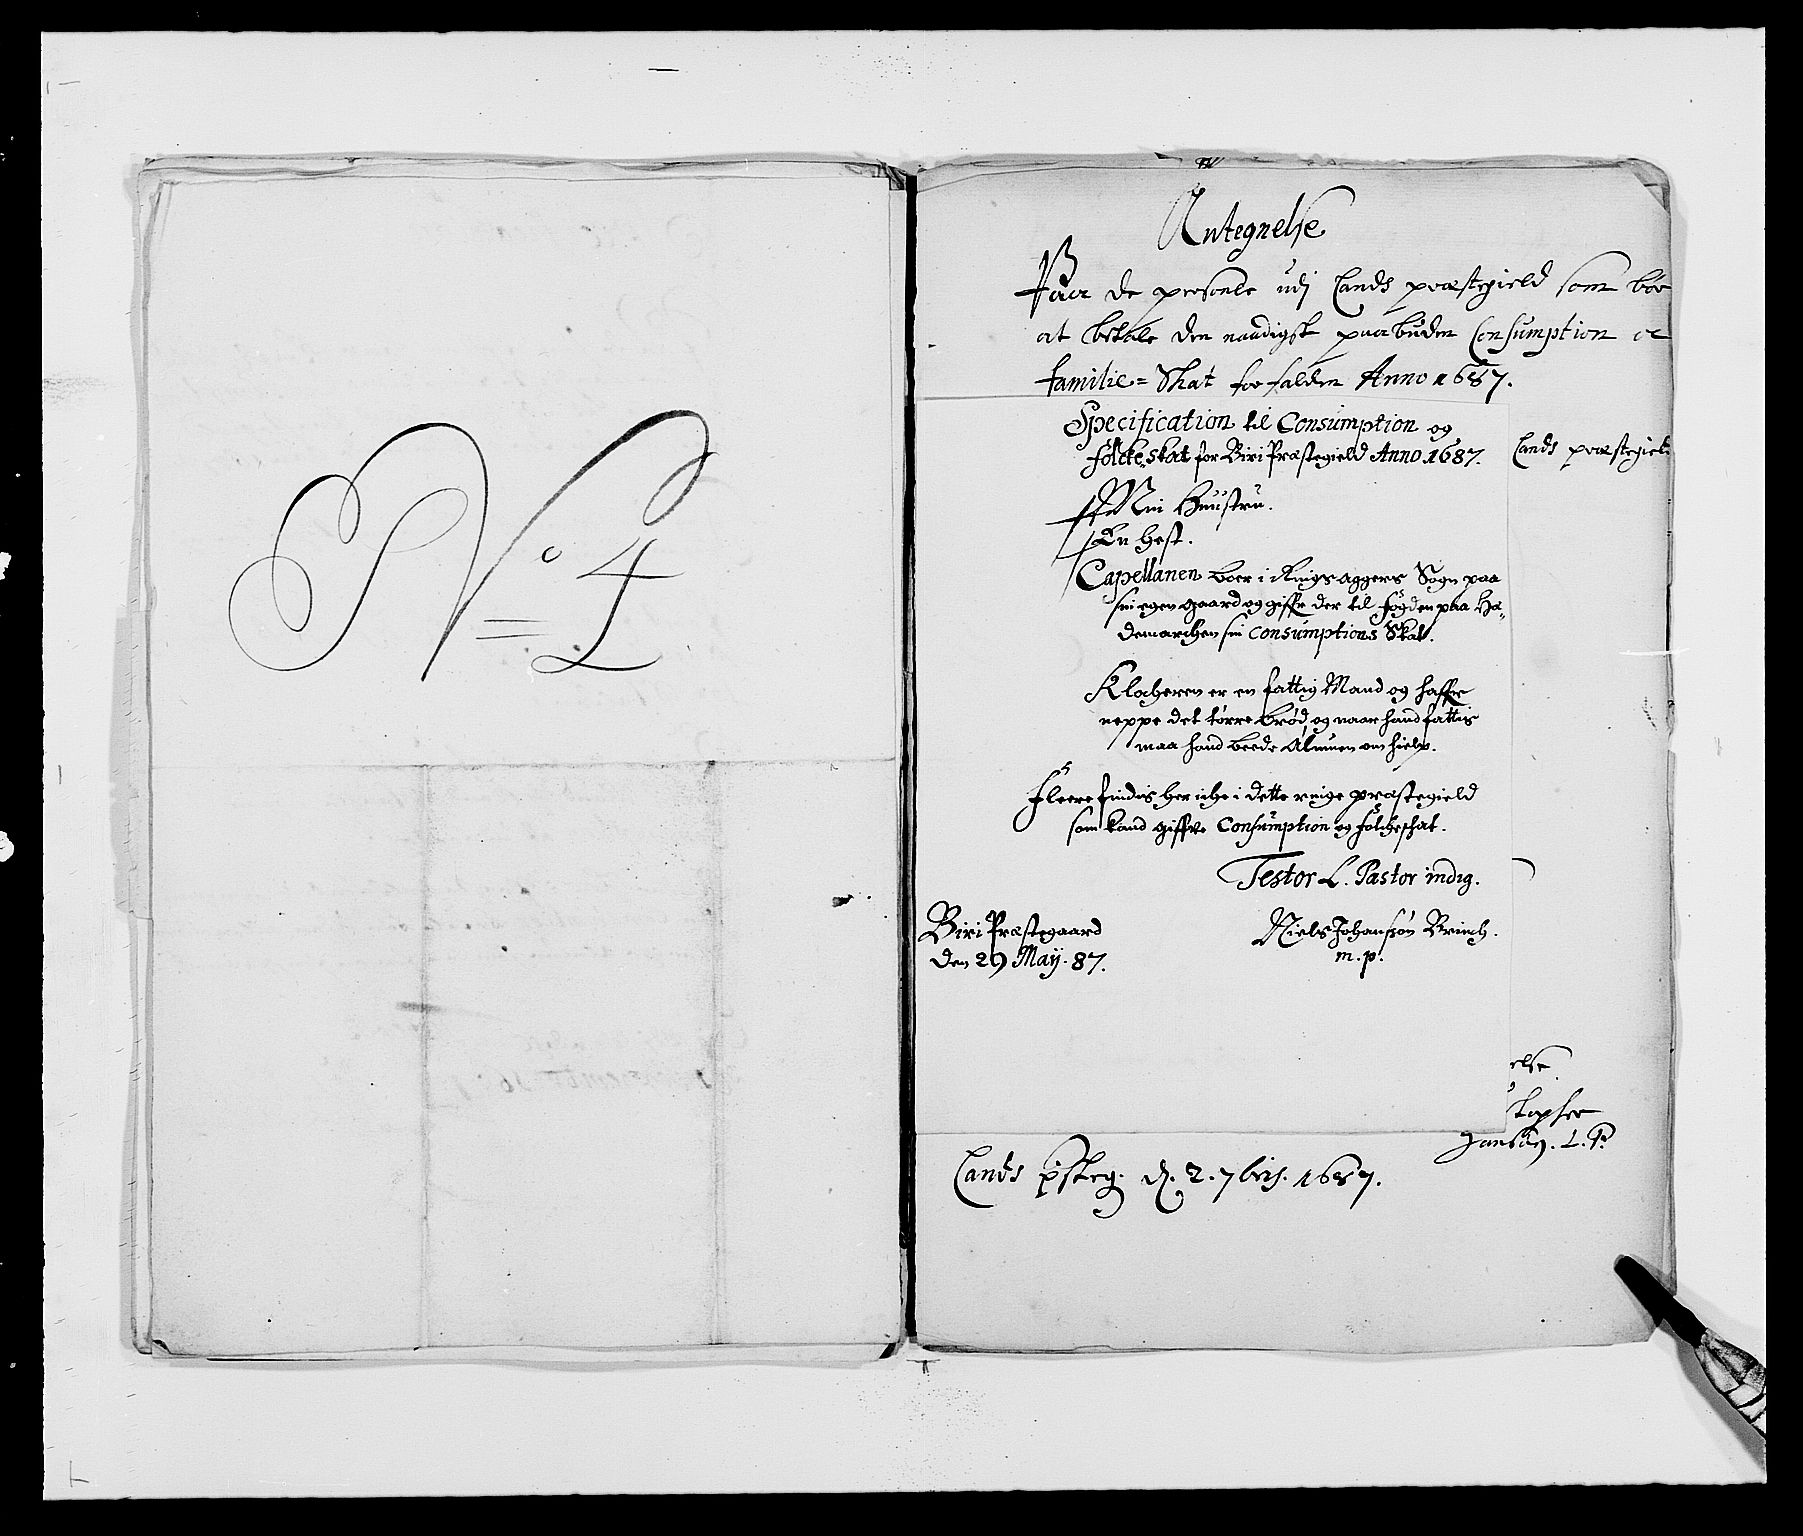 No 4
Antegnelse
Paa de persoele udj Lands præstegield som bør
at betale den naadigst paabuden Consumption oc
familie= Skat for falden Anno 1687.
Specification til Consumption og
folckeskat for Biri Præstegield Anno 1687.
Lands præstegield
Min Huustru.
En Hest.
Capellanen boer i Ringsaggers Sogn paa
sin egen gaard og giffr der til fogden paa He-
demarchen sin Consumptions Skat.
Klocheren er en fattig Mand og haffr
neppe det tørre brød, og naar hand fattis
maa hand beede Almuen om hielp.
Fleere findis her iche i dette ringe præstegield
som kand giffve Consumption og folcheschat.
Testor L. Pastor indig.
Biri Præstegaard
den 29 Maij. 87.
Niels Johansøn Brinch.
m. p.
else
stopher
Jansøn.
Lands psteg. d. 2. 7bris. 1687.